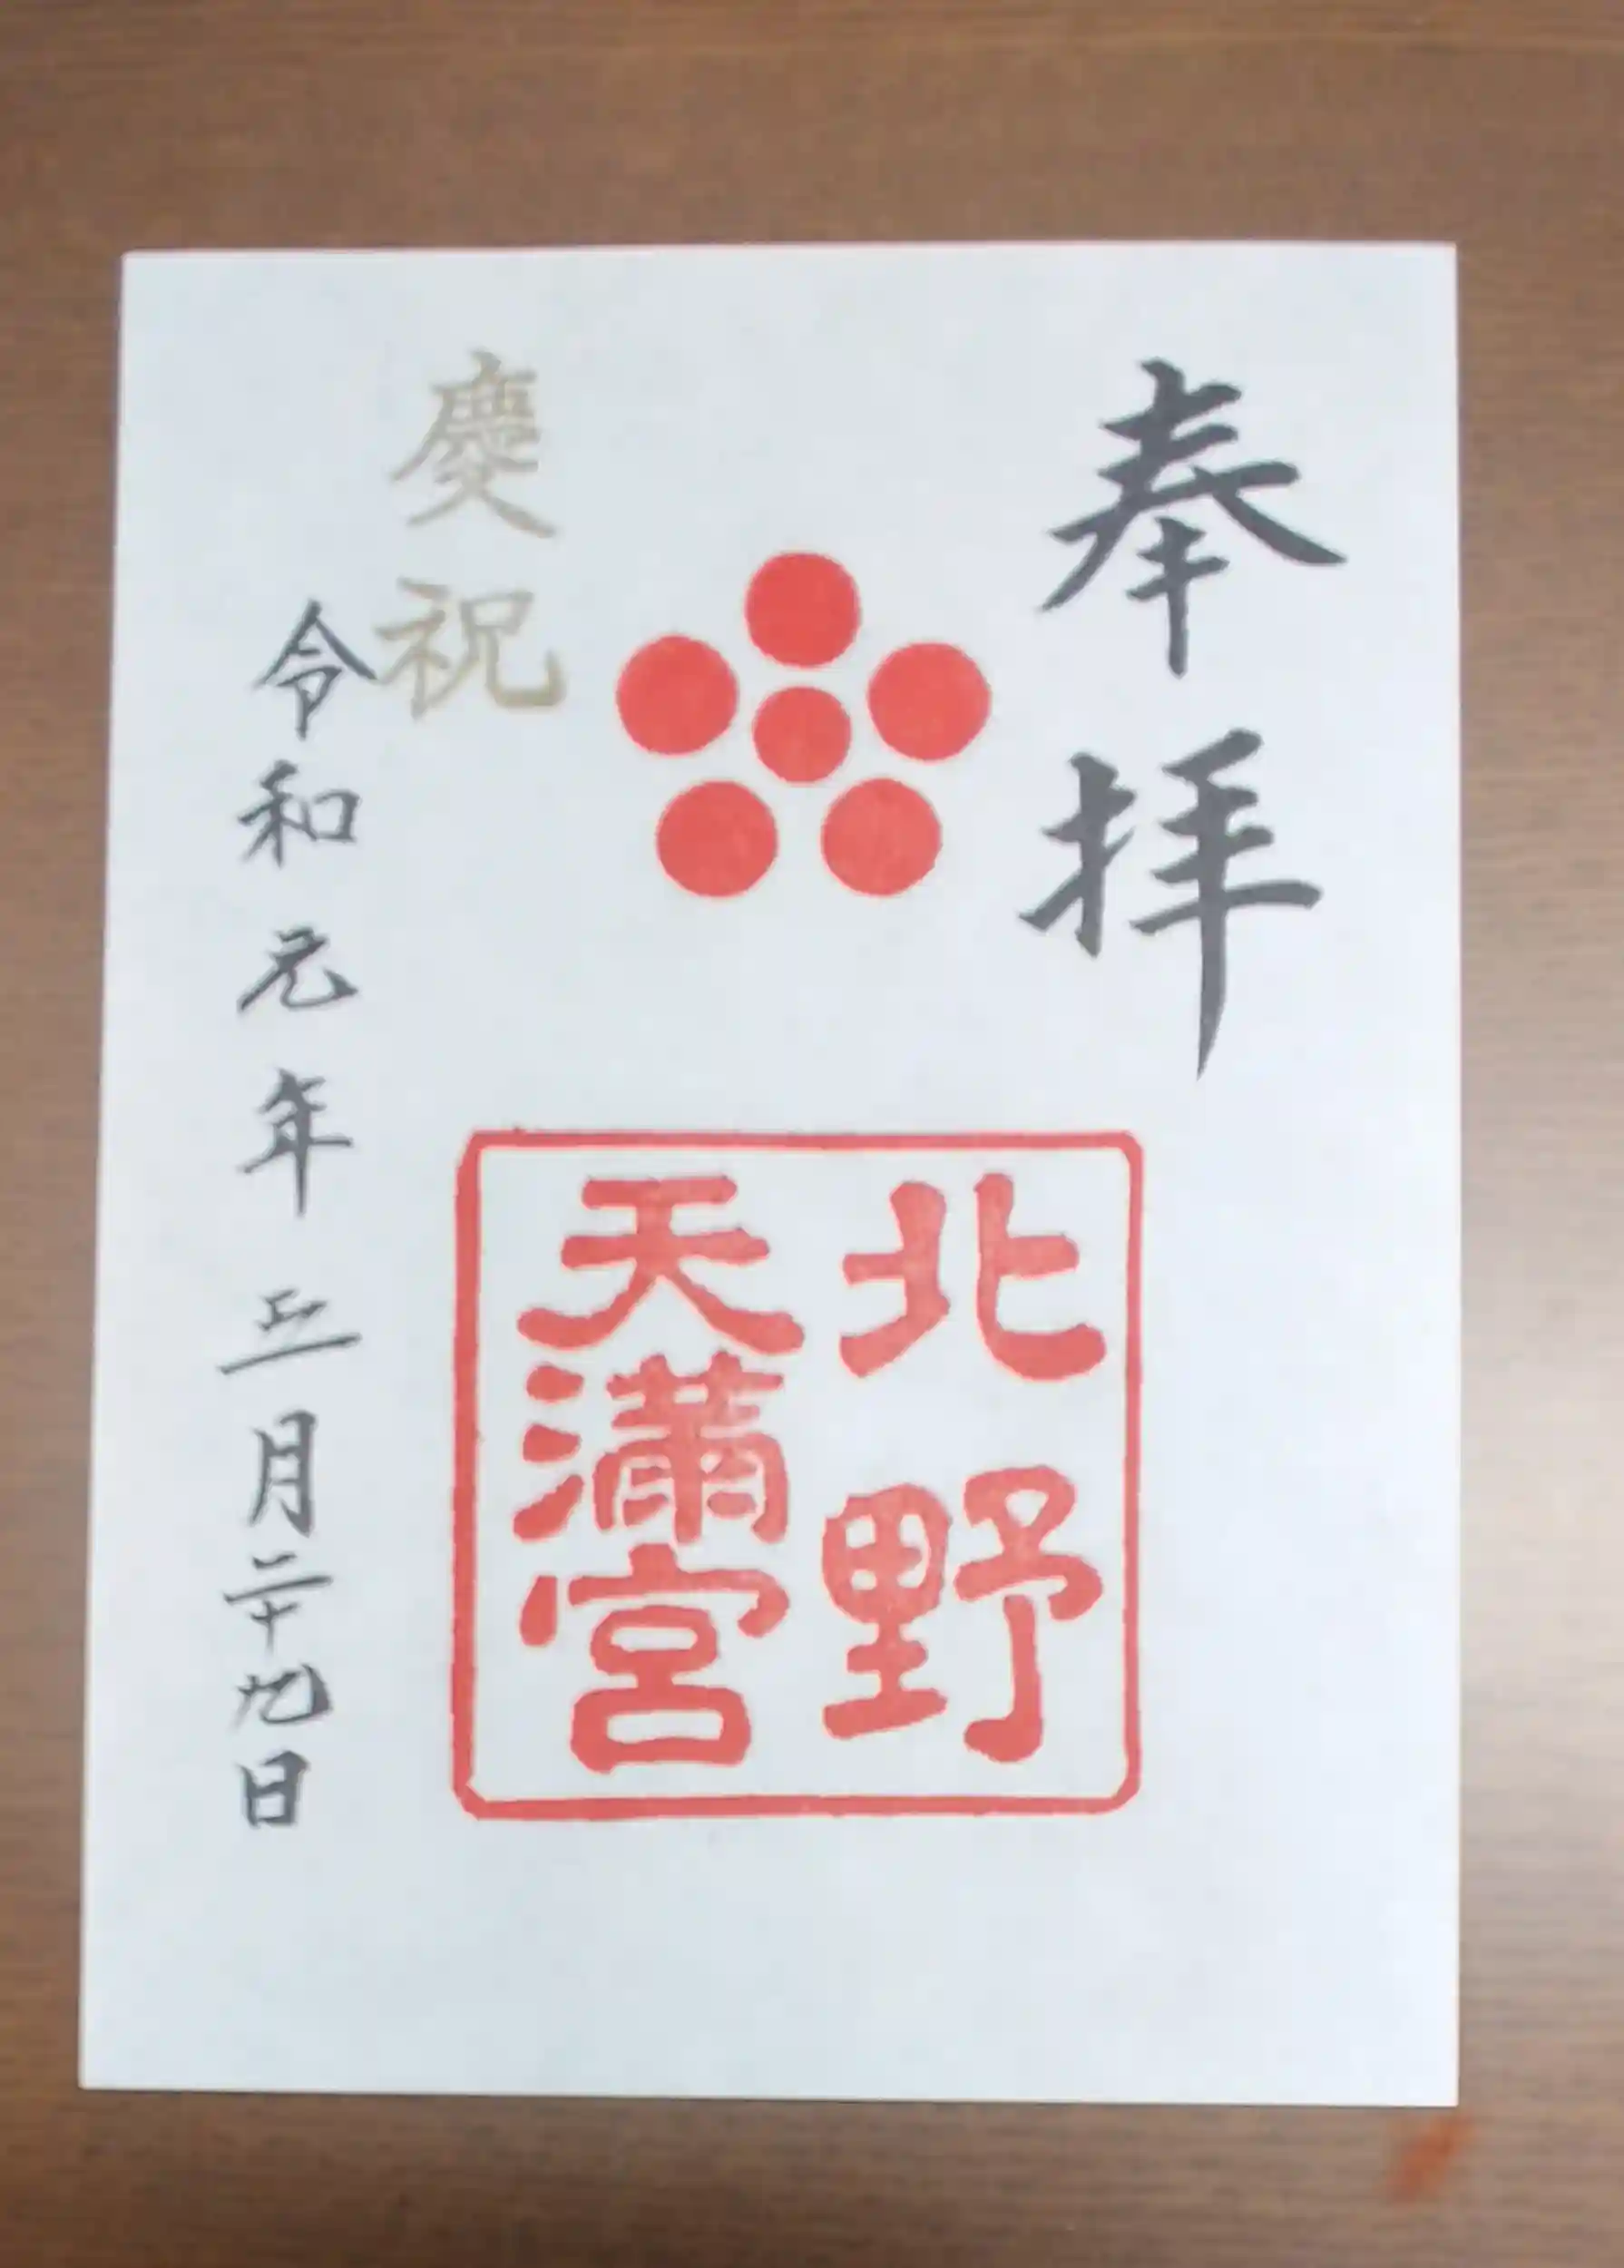 奉拝
北野
天滿宮
慶祝
令和元年五月二十九日